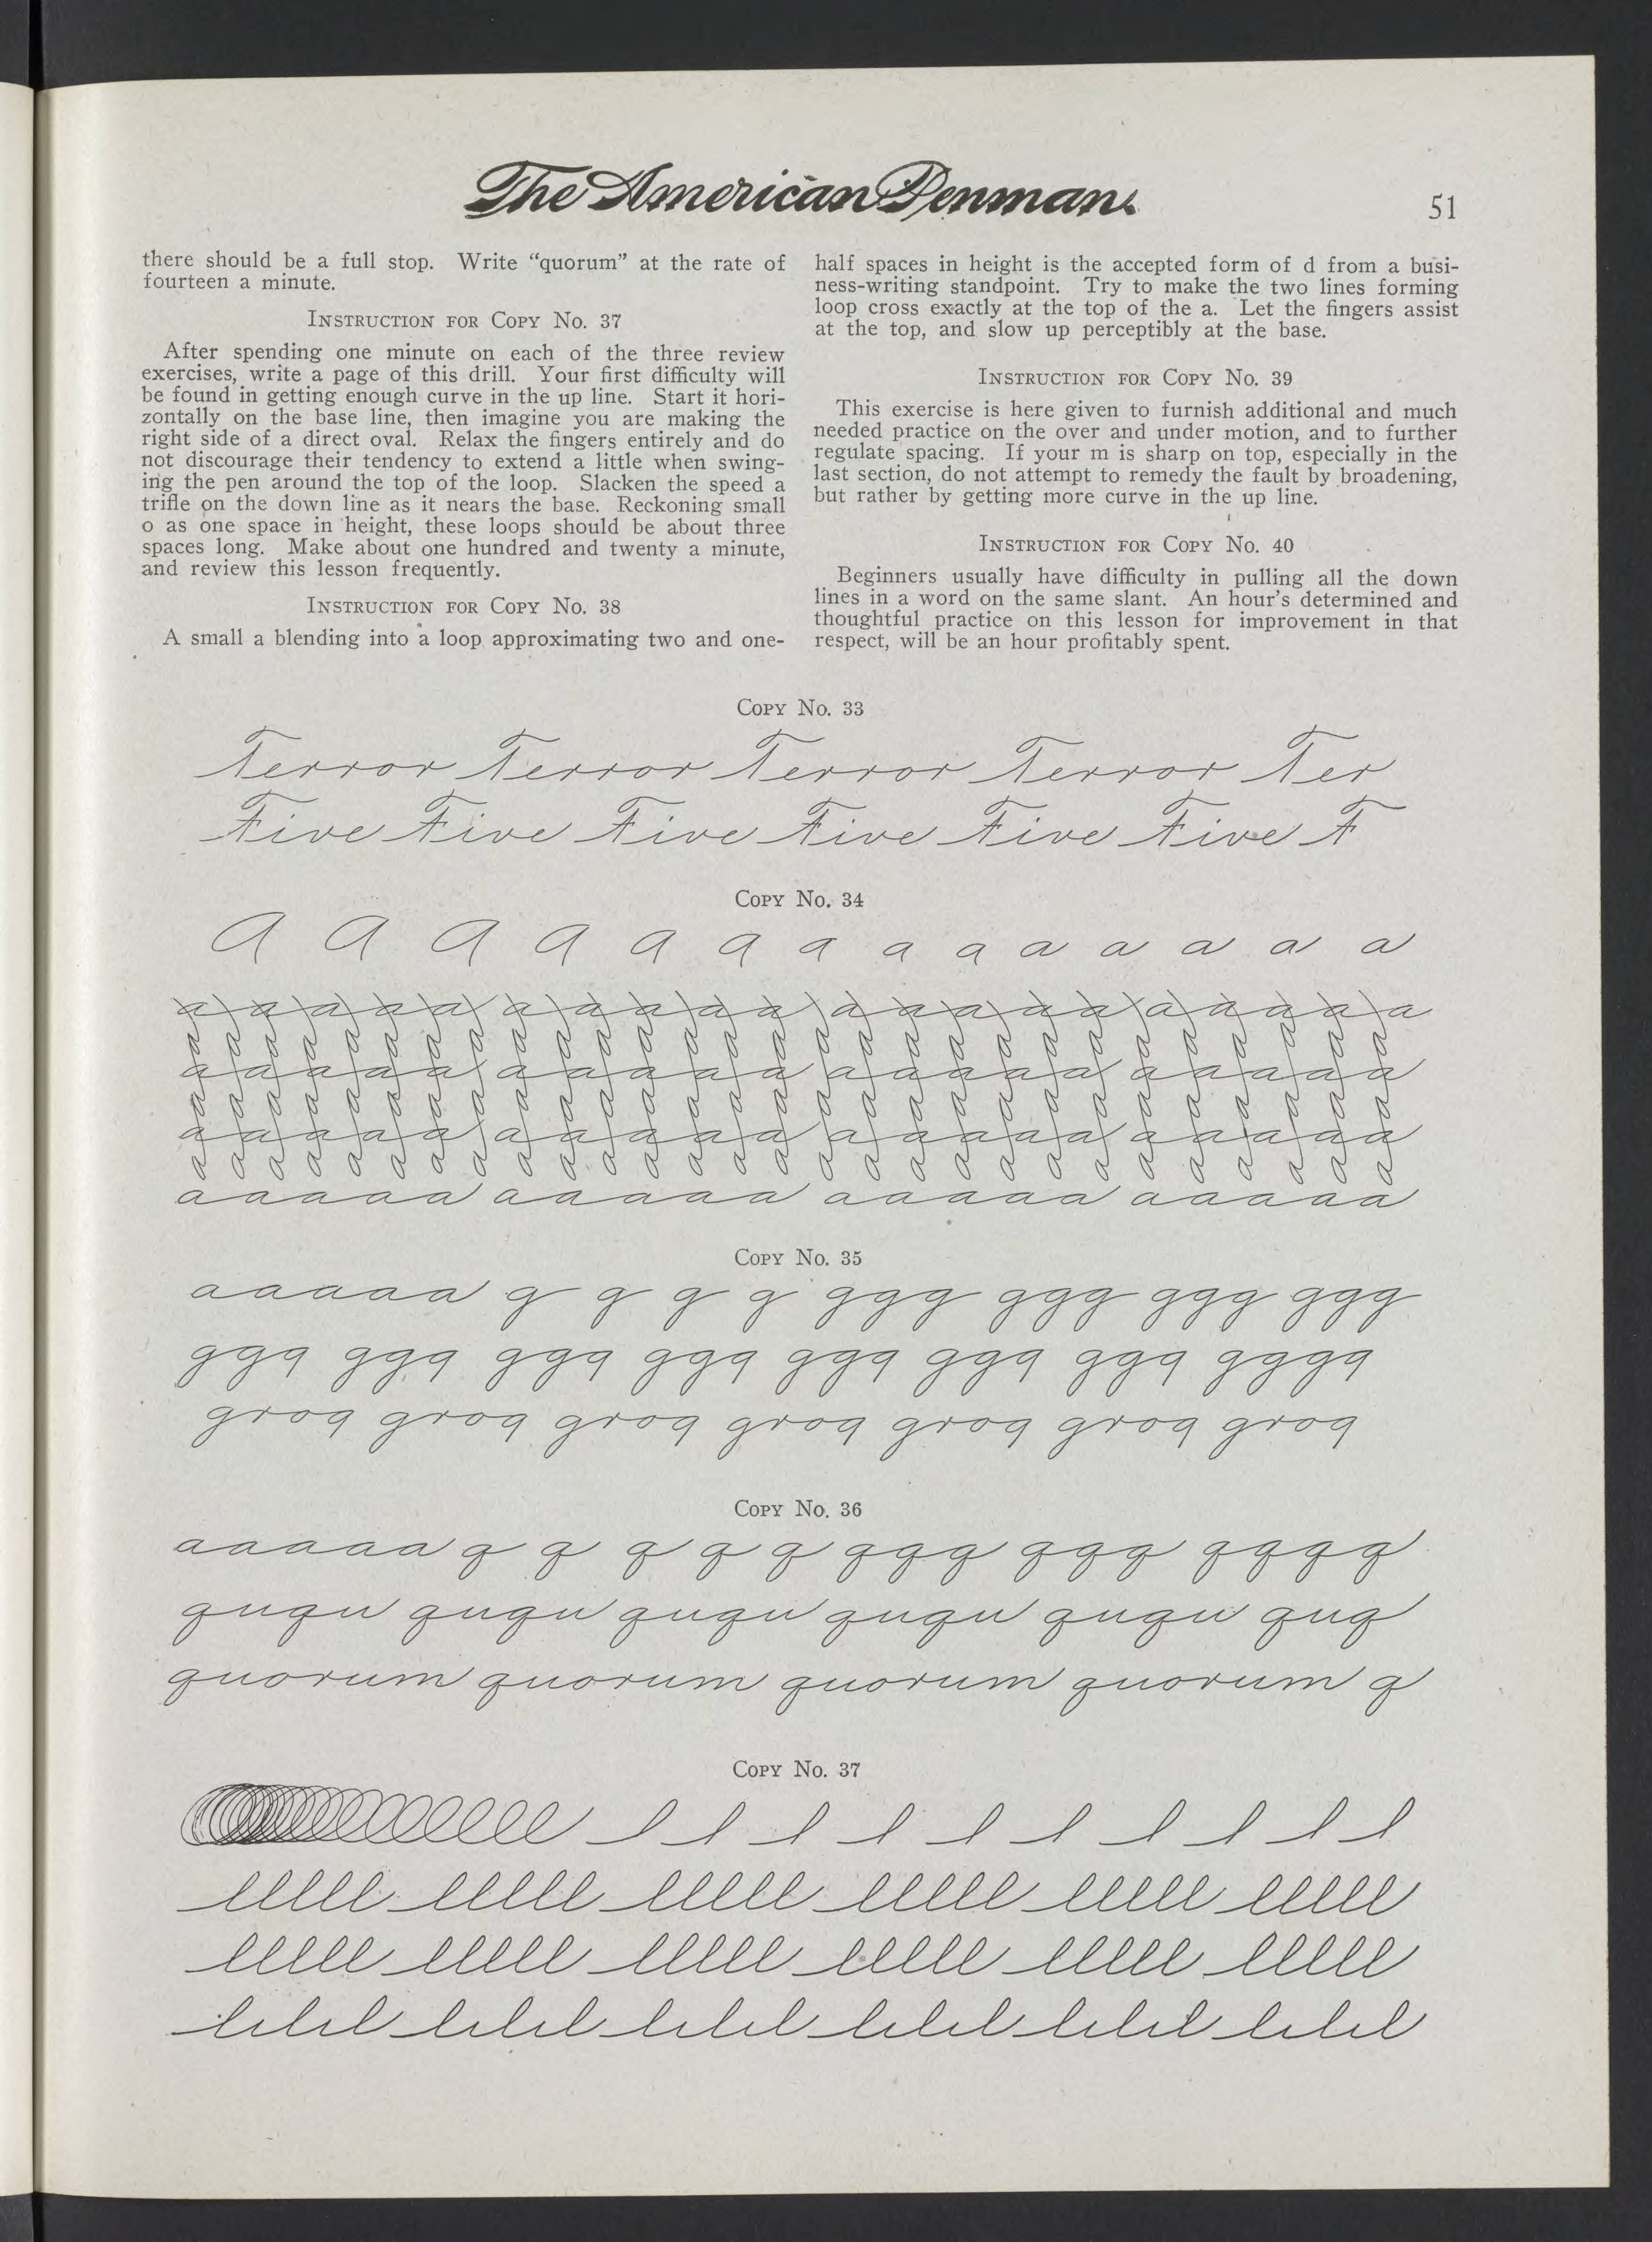 The American Penman
51
there should be a full stop. Write “quorum” at the rate of
fourteen a minute.
Instruction for Copy No. 37
After spending one minute on each of the three review
exercises, write a page of this drill. Your first difficulty will
be found in getting enough curve in the up line. Start it hori-
zontally on the base line, then imagine you are making the
right side of a direct oval. Relax the fingers entirely and do
not discourage their tendency to extend a little when swing-
ing the pen around the top of the loop. Slacken the speed a
trifle on the down line as it nears the base. Reckoning small
o as one space in height, these loops should be about three
spaces long. Make about one hundred and twenty a minute,
and review this lesson frequently.
Instruction for Copy No. 38
A small a blending into a loop approximating two and one-
half spaces in height is the accepted form of d from a busi-
ness-writing standpoint. Try to make the two lines forming
loop cross exactly at the top of the a. Let the fingers assist
at the top, and slow up perceptibly at the base.
Instruction for Copy No. 39
This exercise is here given to furnish additional and much
needed practice on the over and under motion, and to further
regulate spacing. If your m is sharp on top, especially in the
last section, do not attempt to remedy the fault by broadening,
but rather by getting more curve in the up line.
Instruction for Copy No. 40
Beginners usually have difficulty in pulling all the down
lines in a word on the same slant. An hour's determined and
thoughtful practice on this lesson for improvement in that
respect, will be an hour profitably spent.
Copy No. 33
Terror Terror Terror Terror Ter
Five Five Five Five Five Five F
Copy No. 34
a a a a a a a a a a a a a a
aaaaa aaaaa aaaaa aaaaa
Copy No. 35
aaaaa g g g g ggg ggg ggg ggg
ggg ggg ggg ggg ggg ggg ggg gggg
grog grog grog grog grog grog grog
Copy No. 36
aaaaa q q q q q qqq qqq qqqq
ququ ququ ququ ququ ququ quq
quorum quorum quorum quorum q
Copy No. 37
l l l l l l l l l l
lllll lllll lllll lllll lllll lllll
lllll lllll lllll lllll lllll lllll